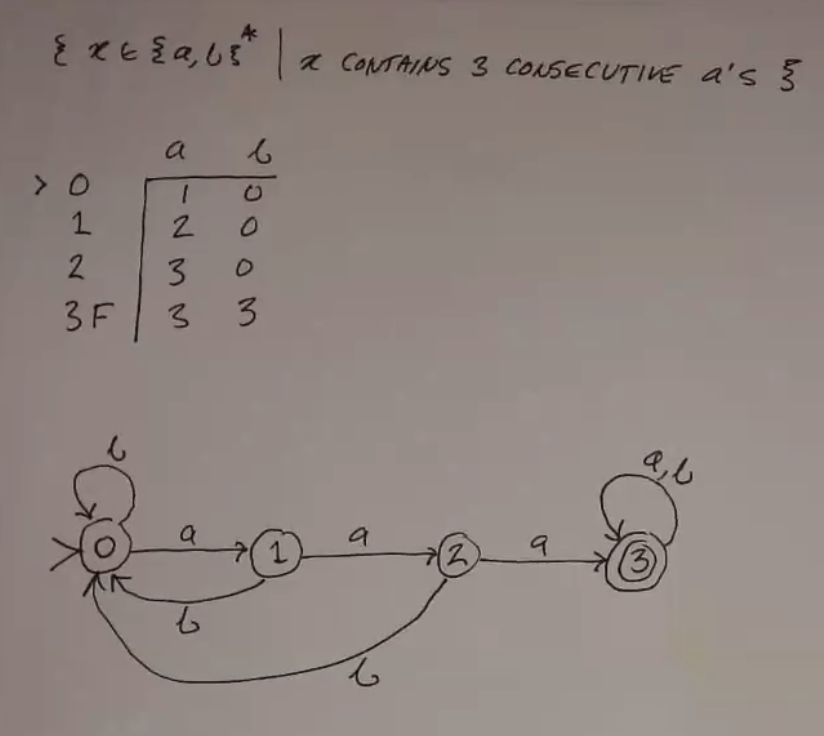 { x ∈ {a,b}* | x CONTAINS 3 CONSECUTIVE a's }
a b
> 0 1 0
1 2 0
2 3 0
3F 3 3
b
a,b
a
a
a
0
1
2
3
b
b